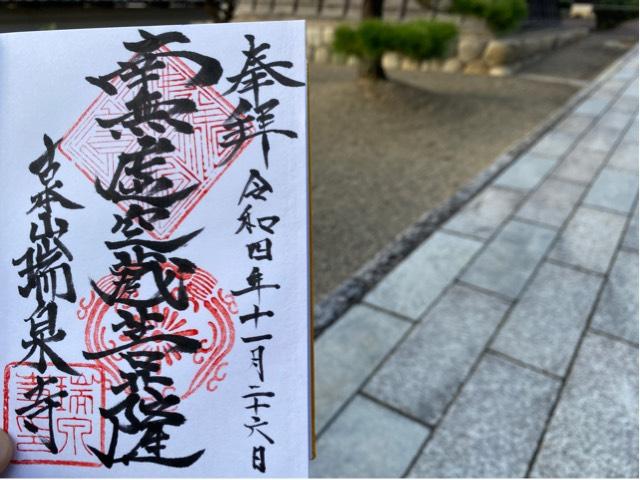 奉拝 令和四年十一月二十六日
南無虚空蔵菩薩
吉本山瑞泉寺